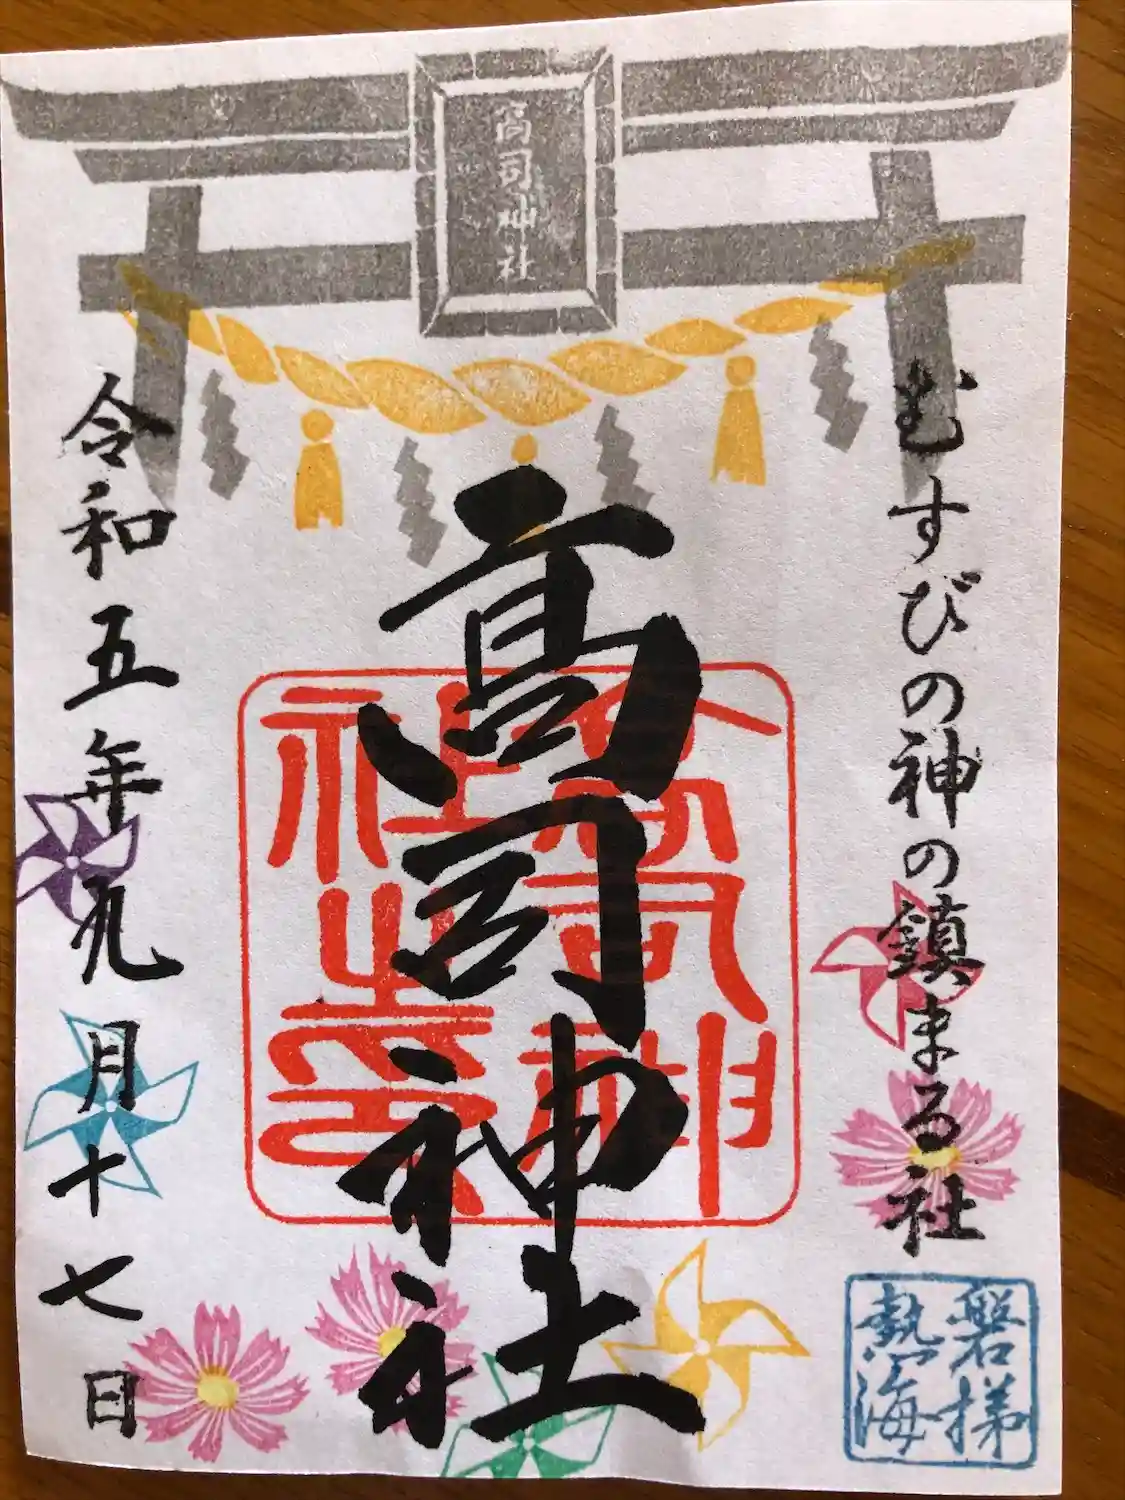 高司神社
むすびの神の鎮まる社
高司神社
高司神社之印
磐梯熱海
令和五年九月十七日